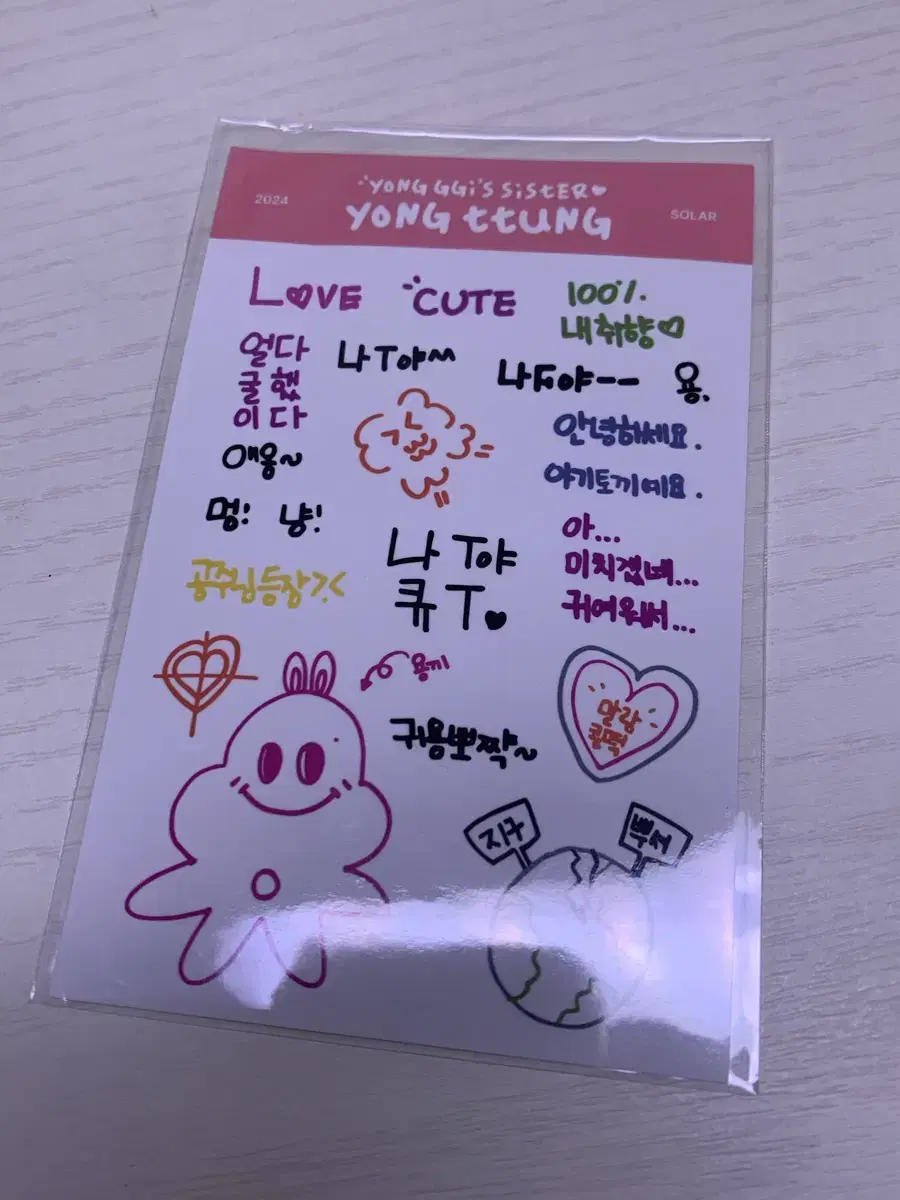 YONG GGi'S SiStER♥
2024
YONG ttUNG
SOLAR
L♥VE
CUTE
100%.
내취향♡
얼다
굴했
이다
나T야^^
나
용.
안녕하세요.
야기토끼예요.
애옹~
멍! 냥!
나 T야
큐T♥
아...
미치겠네...
귀여워서...
공주님등장?.<
용끼
귀용뽀짝~
말랑
콩떡
지구
뿌셔